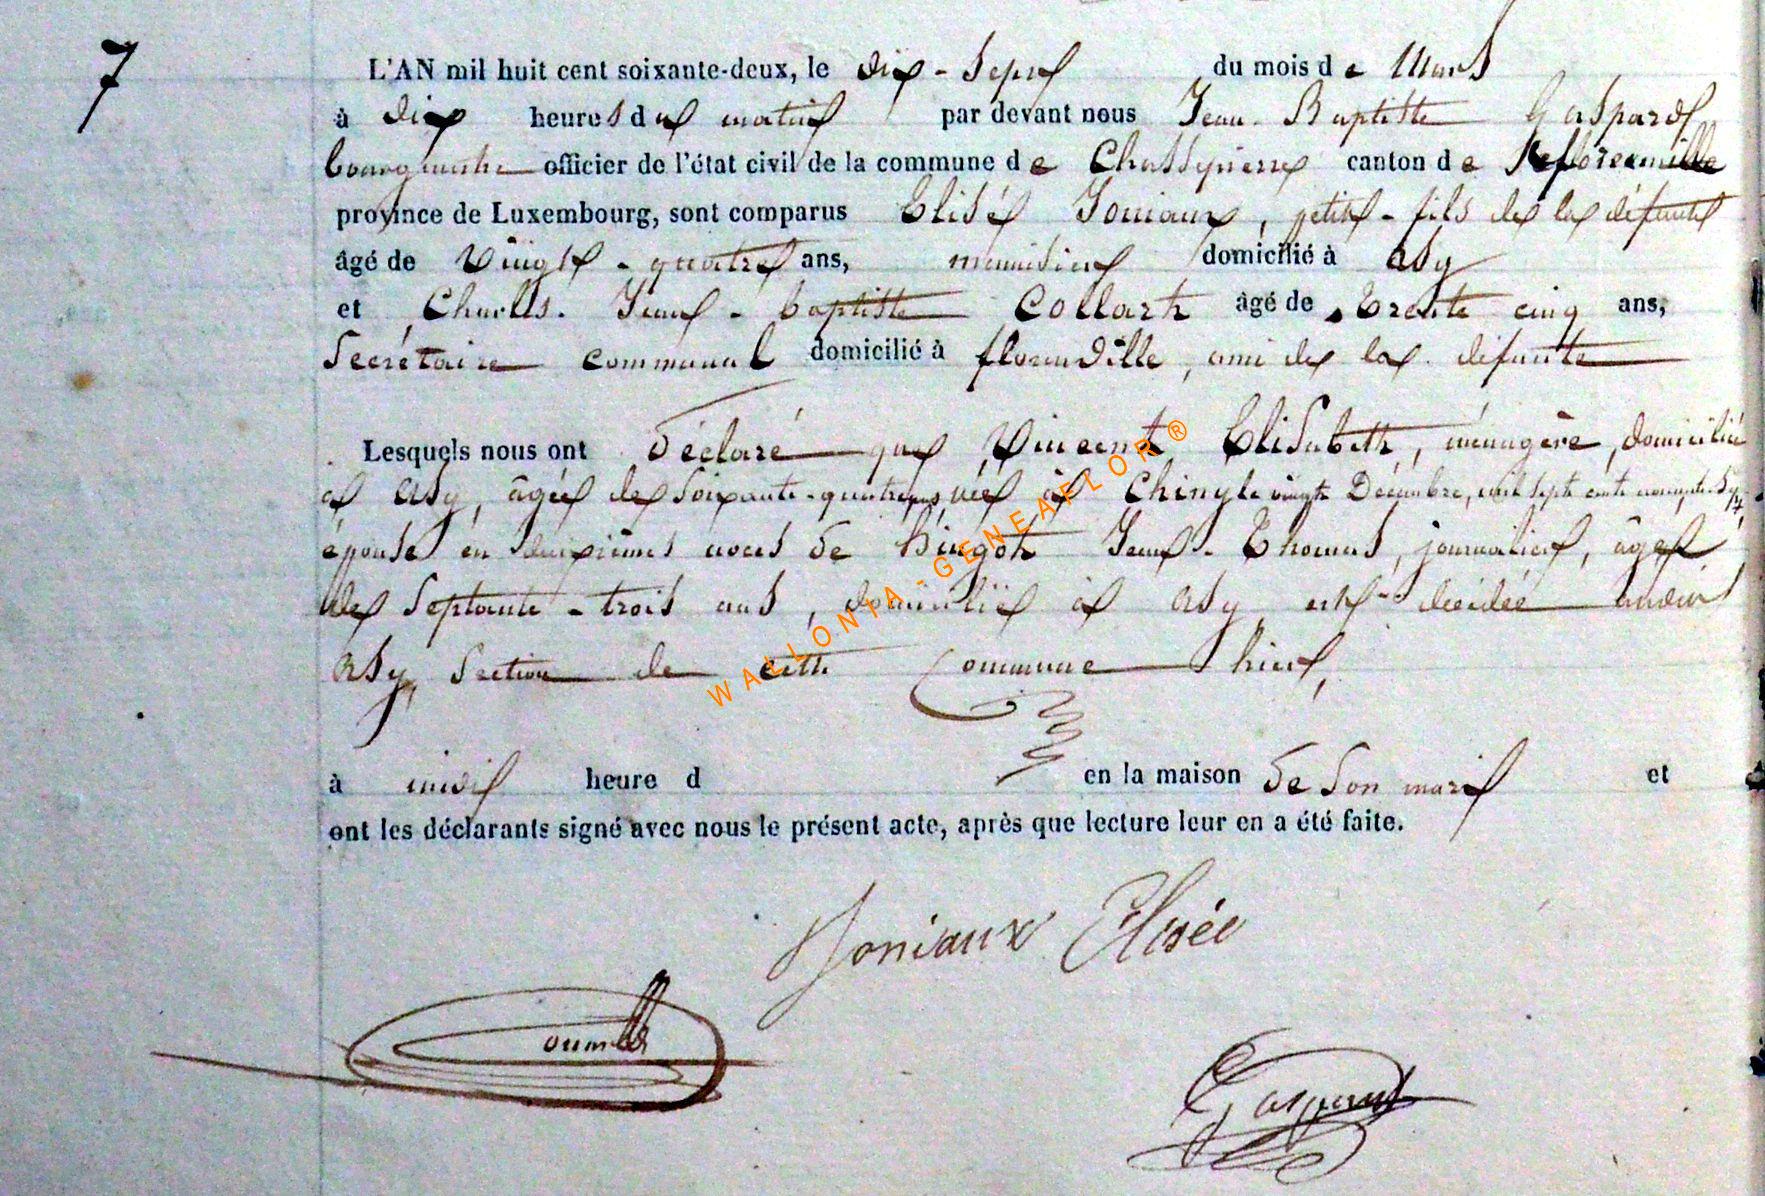 7
L'AN mil huit cent soixante-deux, le dix-sept du mois de Mars
à dix heures du matin par devant nous Jean-Baptiste Gaspard
bourgmestre officier de l'état civil de la commune de Chassepierre canton de florenville
province de Luxembourg, sont comparus Elisé Joniaux, petit-fils de la défunte
âgé de vingt-quatre ans, menuisier domicilié à Asy
et Charles-Jean-baptiste Collart âgé de trente cinq ans,
Secrétaire communal domicilié à florenville, ami de la défunte
Lesquels nous ont déclaré que Vincent Elisabeth, ménagère, domiciliée
à Asy, âgée de Soixante-quatre ans, née à Chiny le vingt Décembre, mil sept cent nonante-sept,
épouse en deuxièmes noces de Hingot Jean-Thomas, journalier, âgé
de Septante-trois ans, domicilié à Asy est décédée audit
Asy, Section de cette Commune hier,
à midi heure d en la maison de Son mari et
ont les déclarants signé avec nous le présent acte, après que lecture leur en a été faite.
WALLONIA-GENEAFLOR®
Joniaux Elisée
Gaspard